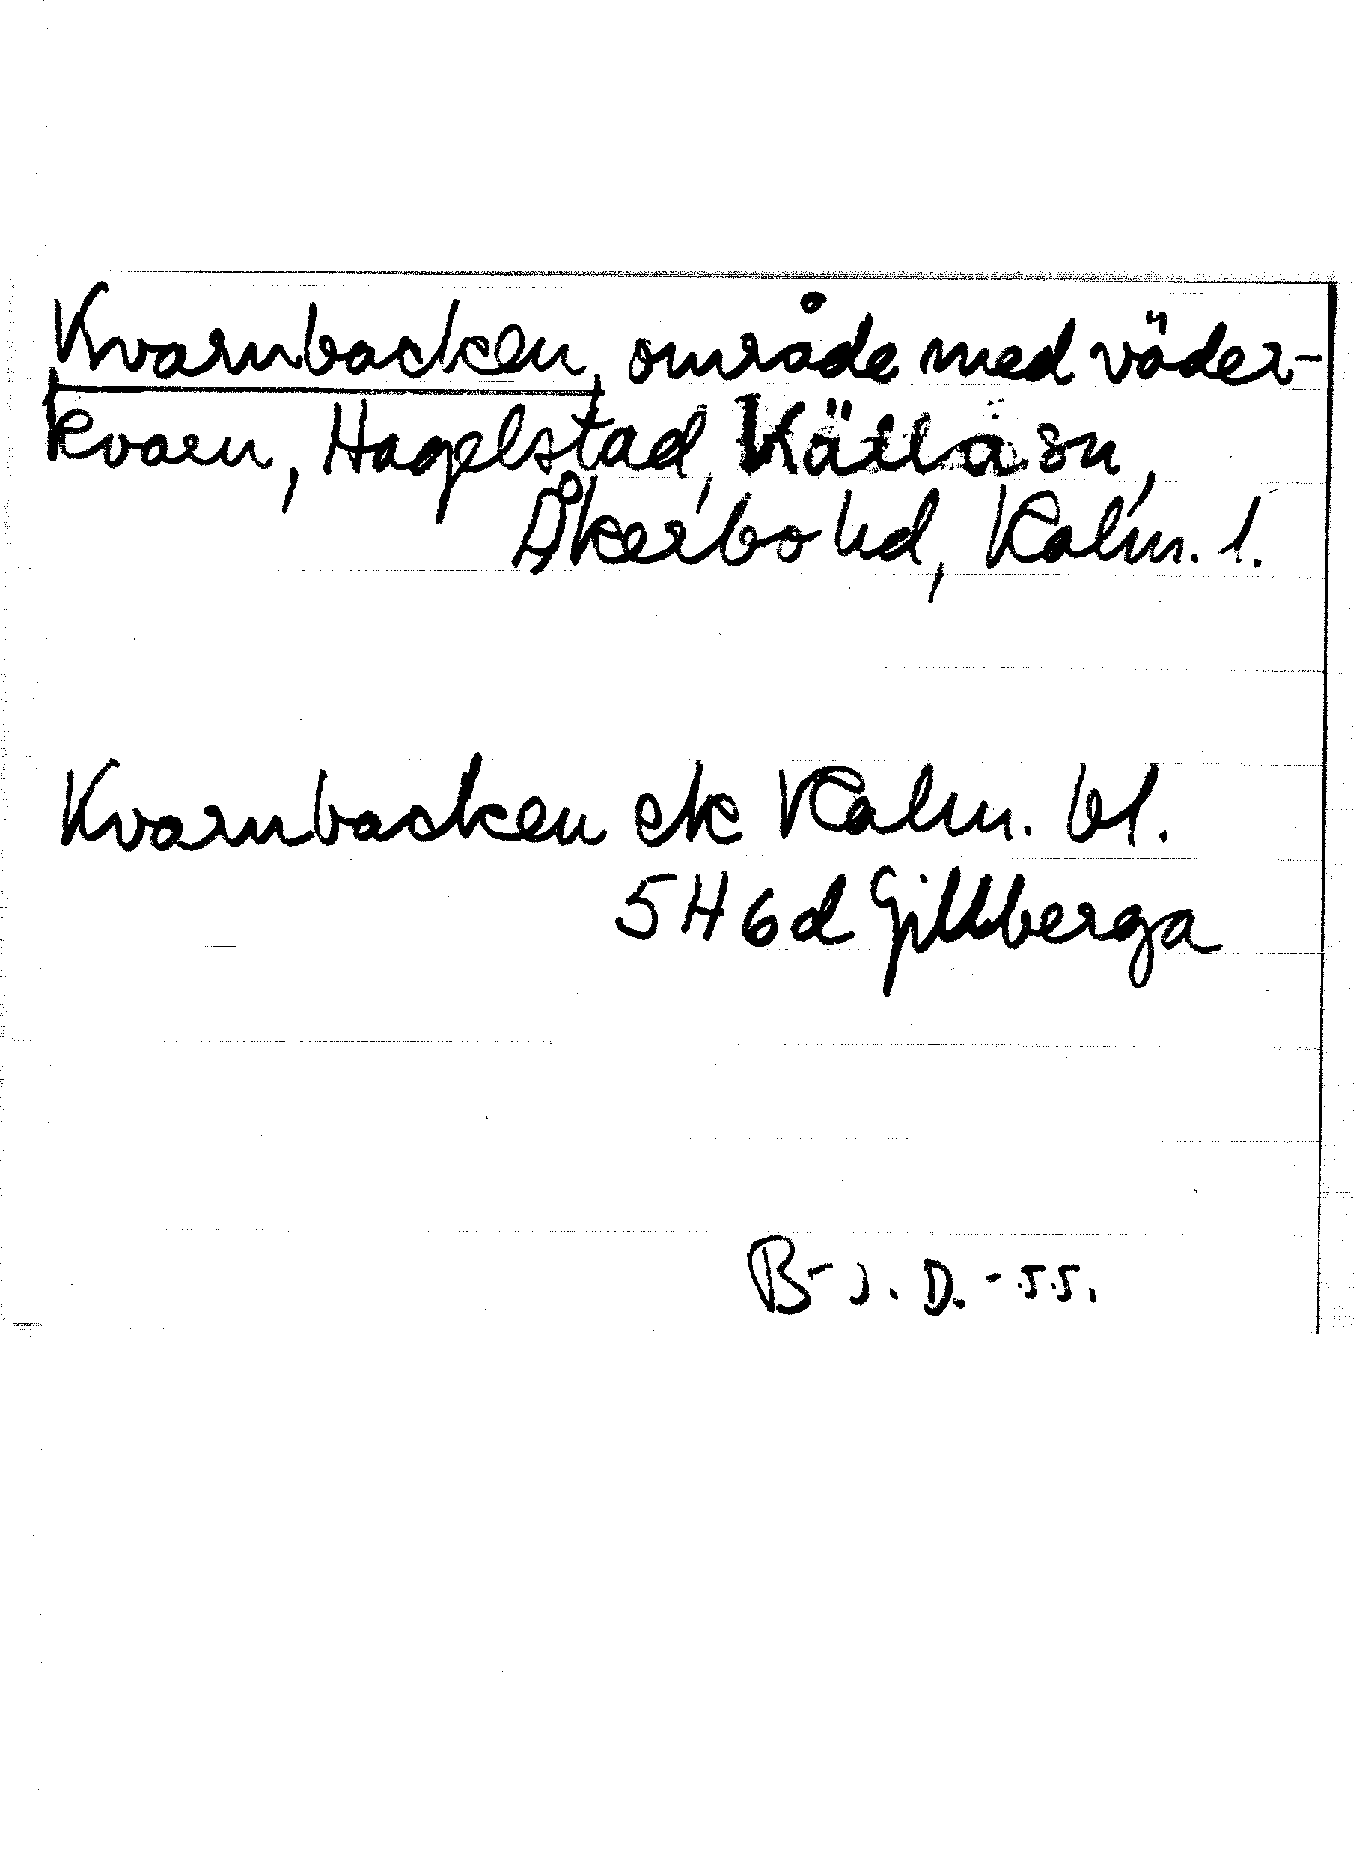 Kvarnbacken, område med väder-
kvarn, Hagelstad, Källa sn,
Åkerbo hd, Kalm. l.
Kvarnbacken ek Kalm. bl.
5H6d Gillberga
B-J. D. -55.